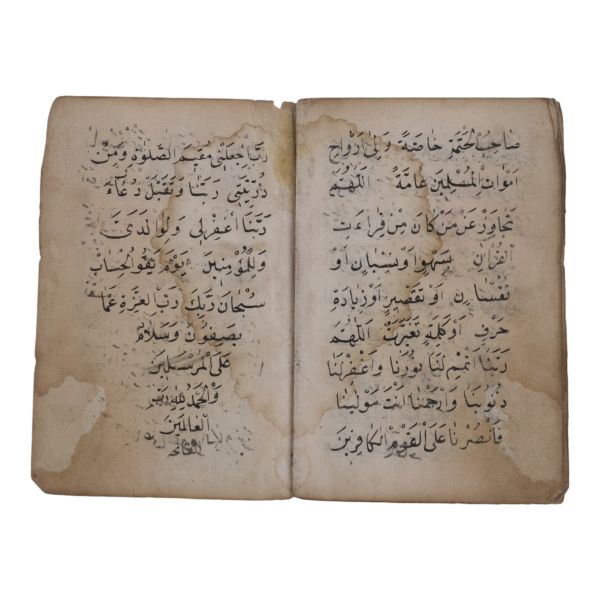 صَاحِبُ الْخَتْمِ خَاصَّةً وَاِلٰى اَرْوَاحِ
اَمْوَاتِ الْمُسْلِمِينَ عَامَّةً اَللّٰهُمَّ
تَجَاوَزْ عَنْ مَنْ كَانَ مِنْ قِرَاءَتِ
الْقُرْاٰنِ سَهْوًا وَنِسْيَانٍ اَوْ
نُقْصَانٍ اَوْ تَقْصِيرٍ اَوْ زِيَادَةِ
حَرْفٍ اَوْ كَلِمَةٍ تَغَيَّرَتْ اَللّٰهُمَّ
رَبَّنَا اَتْمِمْ لَنَا نُورَنَا وَاغْفِرْ لَنَا
ذُنُوبَنَا وَارْحَمْنَا اَنْتَ مَوْلٰينَا
فَانْصُرْنَا عَلَى الْقَوْمِ الْكَافِرِينَ
رَبِّ اجْعَلْنِي مُقِيمَ الصَّلٰوةِ وَمِنْ
ذُرِّيَّتِي رَبَّنَا وَتَقَبَّلْ دُعَاءَ
رَبَّنَا اغْفِرْلِي وَلِوَالِدَيَّ
وَلِلْمُؤْمِنِينَ يَوْمَ يَقُومُ الْحِسَابُ
سُبْحَانَ رَبِّكَ رَبِّ الْعِزَّةِ عَمَّا
يَصِفُونَ وَسَلَامٌ
عَلَى الْمُرْسَلِينَ
وَالْحَمْدُ لِلّٰهِ رَبِّ
الْعَالَمِينَ
الفاتحه